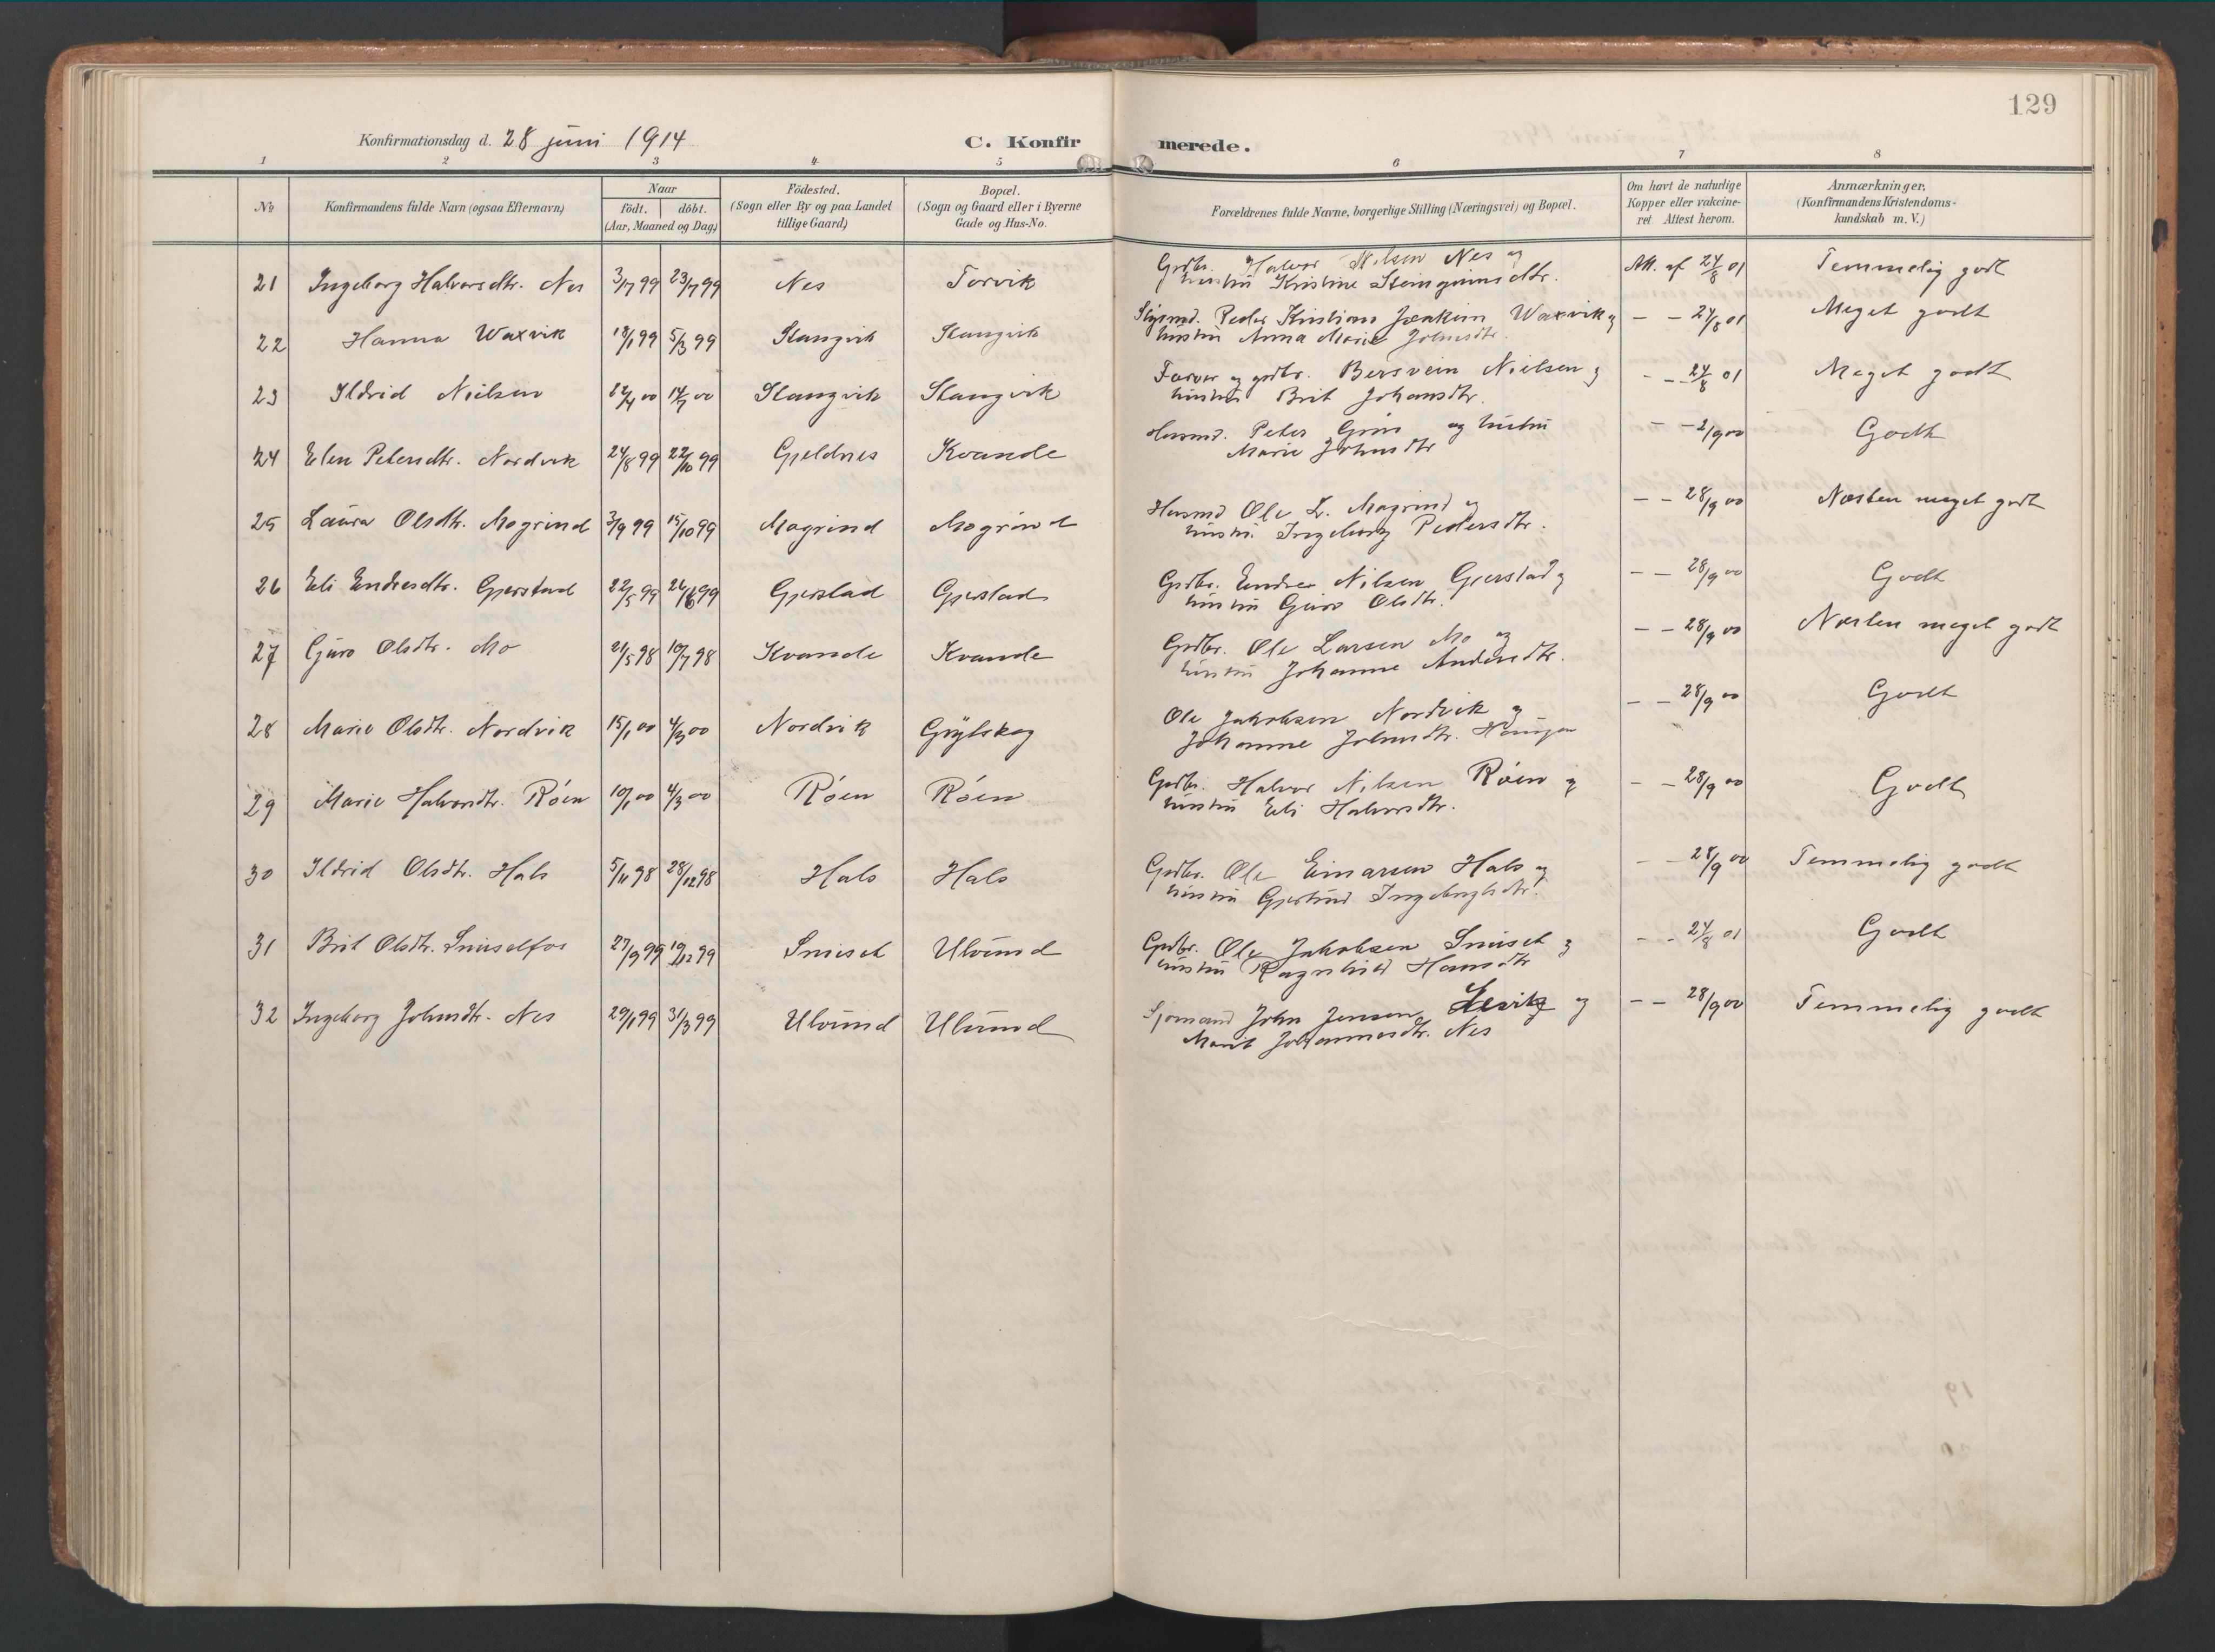 129
Konfirmationsdag d. 28 juni 1914 C. Konfirmerede.
1 2 3 4 5 6 7 8
№ Konfirmandens fulde Navn (ogsaa Efternavn) Naar födt. döbt. (Aar, Maaned og Dag) Födested. (Sogn eller By og paa Landet tillige Gaard) Bopæl. (Sogn og Gaard eller i Byerne Gade og Hus-No. Forældrenes fulde Navne, borgerlige Stilling (Næringsvei) og Bopæl. Om havt de naturlige Kopper eller vakcineret Attest herom. Anmærkninger. (Konfirmandens Kristendomskundskab m. V.)
21 Ingeborg Halvorsdtr. Nes 3/7 99 23/7 99 Nes Torvik Grdbr. Halvor Nilsen Nes og Att. af 24/8 01 Temmelig godt
hustru Kristine Steingrimsdtr.
22 Hanna Waxvik 18/1 99 5/3 99 Stangvik Stangvik Peder Kristian Joakim Waxvik og – – 24/8 01 Meget godt
hustru Anna Marie Johnsdtr.
23 Ildrid Nielsen 14/7 00 Stangvik Stangvik Farver og grdbr. Bersvein Nielsen og – – 24/8 01 Meget godt
hustru Brit Johansdtr.
24 Elen Petersdtr. Nordvik 24/8 99 22/10 99 Gjeldnes Kvande Husmd. Peter og hustru – – 2/9 00 Godt
Marie Johnsdtr
25 Laura Olsdtr. Mogrind 3/9 99 15/10 99 Mogrind Mogrind Husmd Ole L. Mogrind og – – 28/9 00 Næsten meget godt
hustru Ingeborg Pedersdtr.
26 Eli Endresdtr. Gjerstad 22/5 99 26/6 99 Gjerstad Gjerstad Grdbr. Endre Nilsen Gjerstad og – – 28/9 00 Godt
hustru Guro Olsdtr.
27 Guro Olsdtr. Mo 21/5 98 10/7 98 Kvande Kvande Grdbr. Ole Larsen Mo og – – 28/9 00 Næsten meget godt
hustru Johanne Andersdtr.
28 Marie Olsdtr. Nordvik 15/1 00 4/3 00 Nordvik Grytskog Ole Jakobsen Nordvik og – – 28/9 00 Godt
Johanne Johnsdtr.
29 Marie Halvorsdtr. Røen 10/1 00 4/3 00 Røen Røen Grdbr. Halvor Nilsen Røen og – – 28/9 00 Godt
hustru Eli Halvorsdtr.
30 Ildrid Olsdtr. Hals 5/11 98 28/12 98 Hals Hals Grdbr. Ole Einarsen Hals og – – 28/9 00 Temmelig godt
hustru Gjertrud Ingebrigtsdtr.
31 Brit Olsdtr. Snuselfos 27/9 99 10/12 99 Snuset Ulvund Grdbr. Ole Jakobsen Snuset og – – 24/8 01 Godt
hustru Ragnhild Hansdtr
32 Ingeborg Johnsdtr. Nes 29/1 99 31/3 99 Ulvund Ulvund Sjømand John Jensen og – – 28/9 00 Temmelig godt
Marit Johannesdtr. Nes